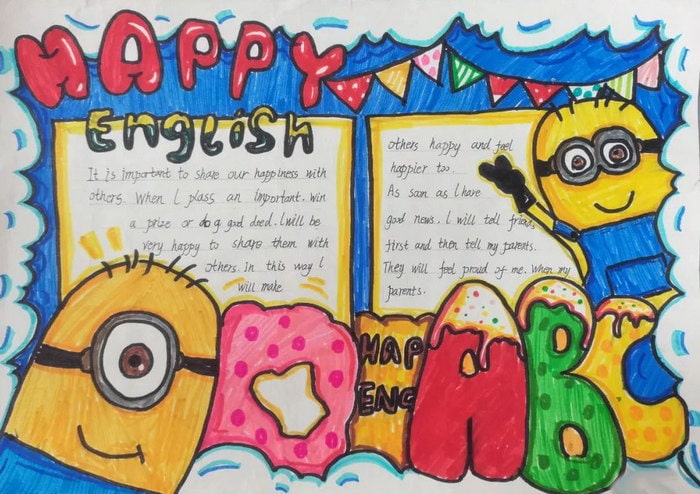 HAPPY
English
It is important to share our happiness with
others. When I plass an important. win
a prize or do g good deed. I will be
very happy to share them with
others. In this way I
will make
others happy and feel
happier too.
As soon as I have
good news. I will tell friends
first and then tell my parents.
They will feel proud of me. When my
parents.
HAP
ENG
ABC